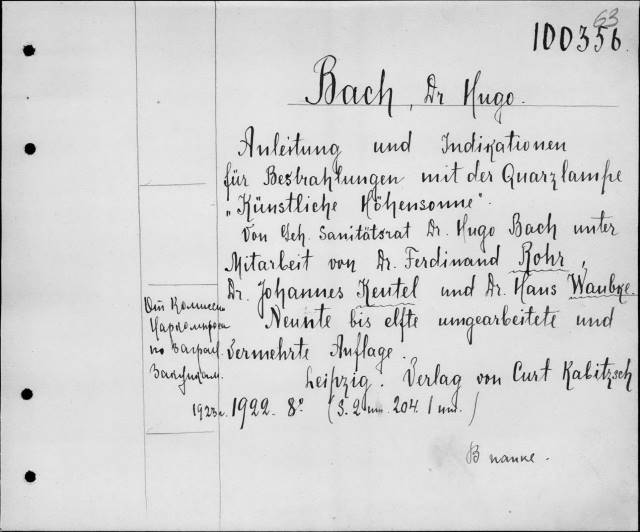 63
100356.
Bach, Dr Hugo.
Anleitung und Indikationen
für Bestrahlungen mit der Quarzlampe
„Künstliche Höhensonne".
Von Geh. Sanitätsrat Dr. Hugo Bach unter
Mitarbeit von Dr. Ferdinand Rohr,
Dr. Johannes Keutel und Dr. Hans Waubke.
Neunte bis elfte umgearbeitete und
vermehrte Auflage.
Leipzig. Verlag von Curt Kabitzsch
1922. 8° (S. 2 nn. 204. 1 nn.)
От Комиссии
Наркомпроса
по Загран.
Закупкам.
1923 г.
В папке.